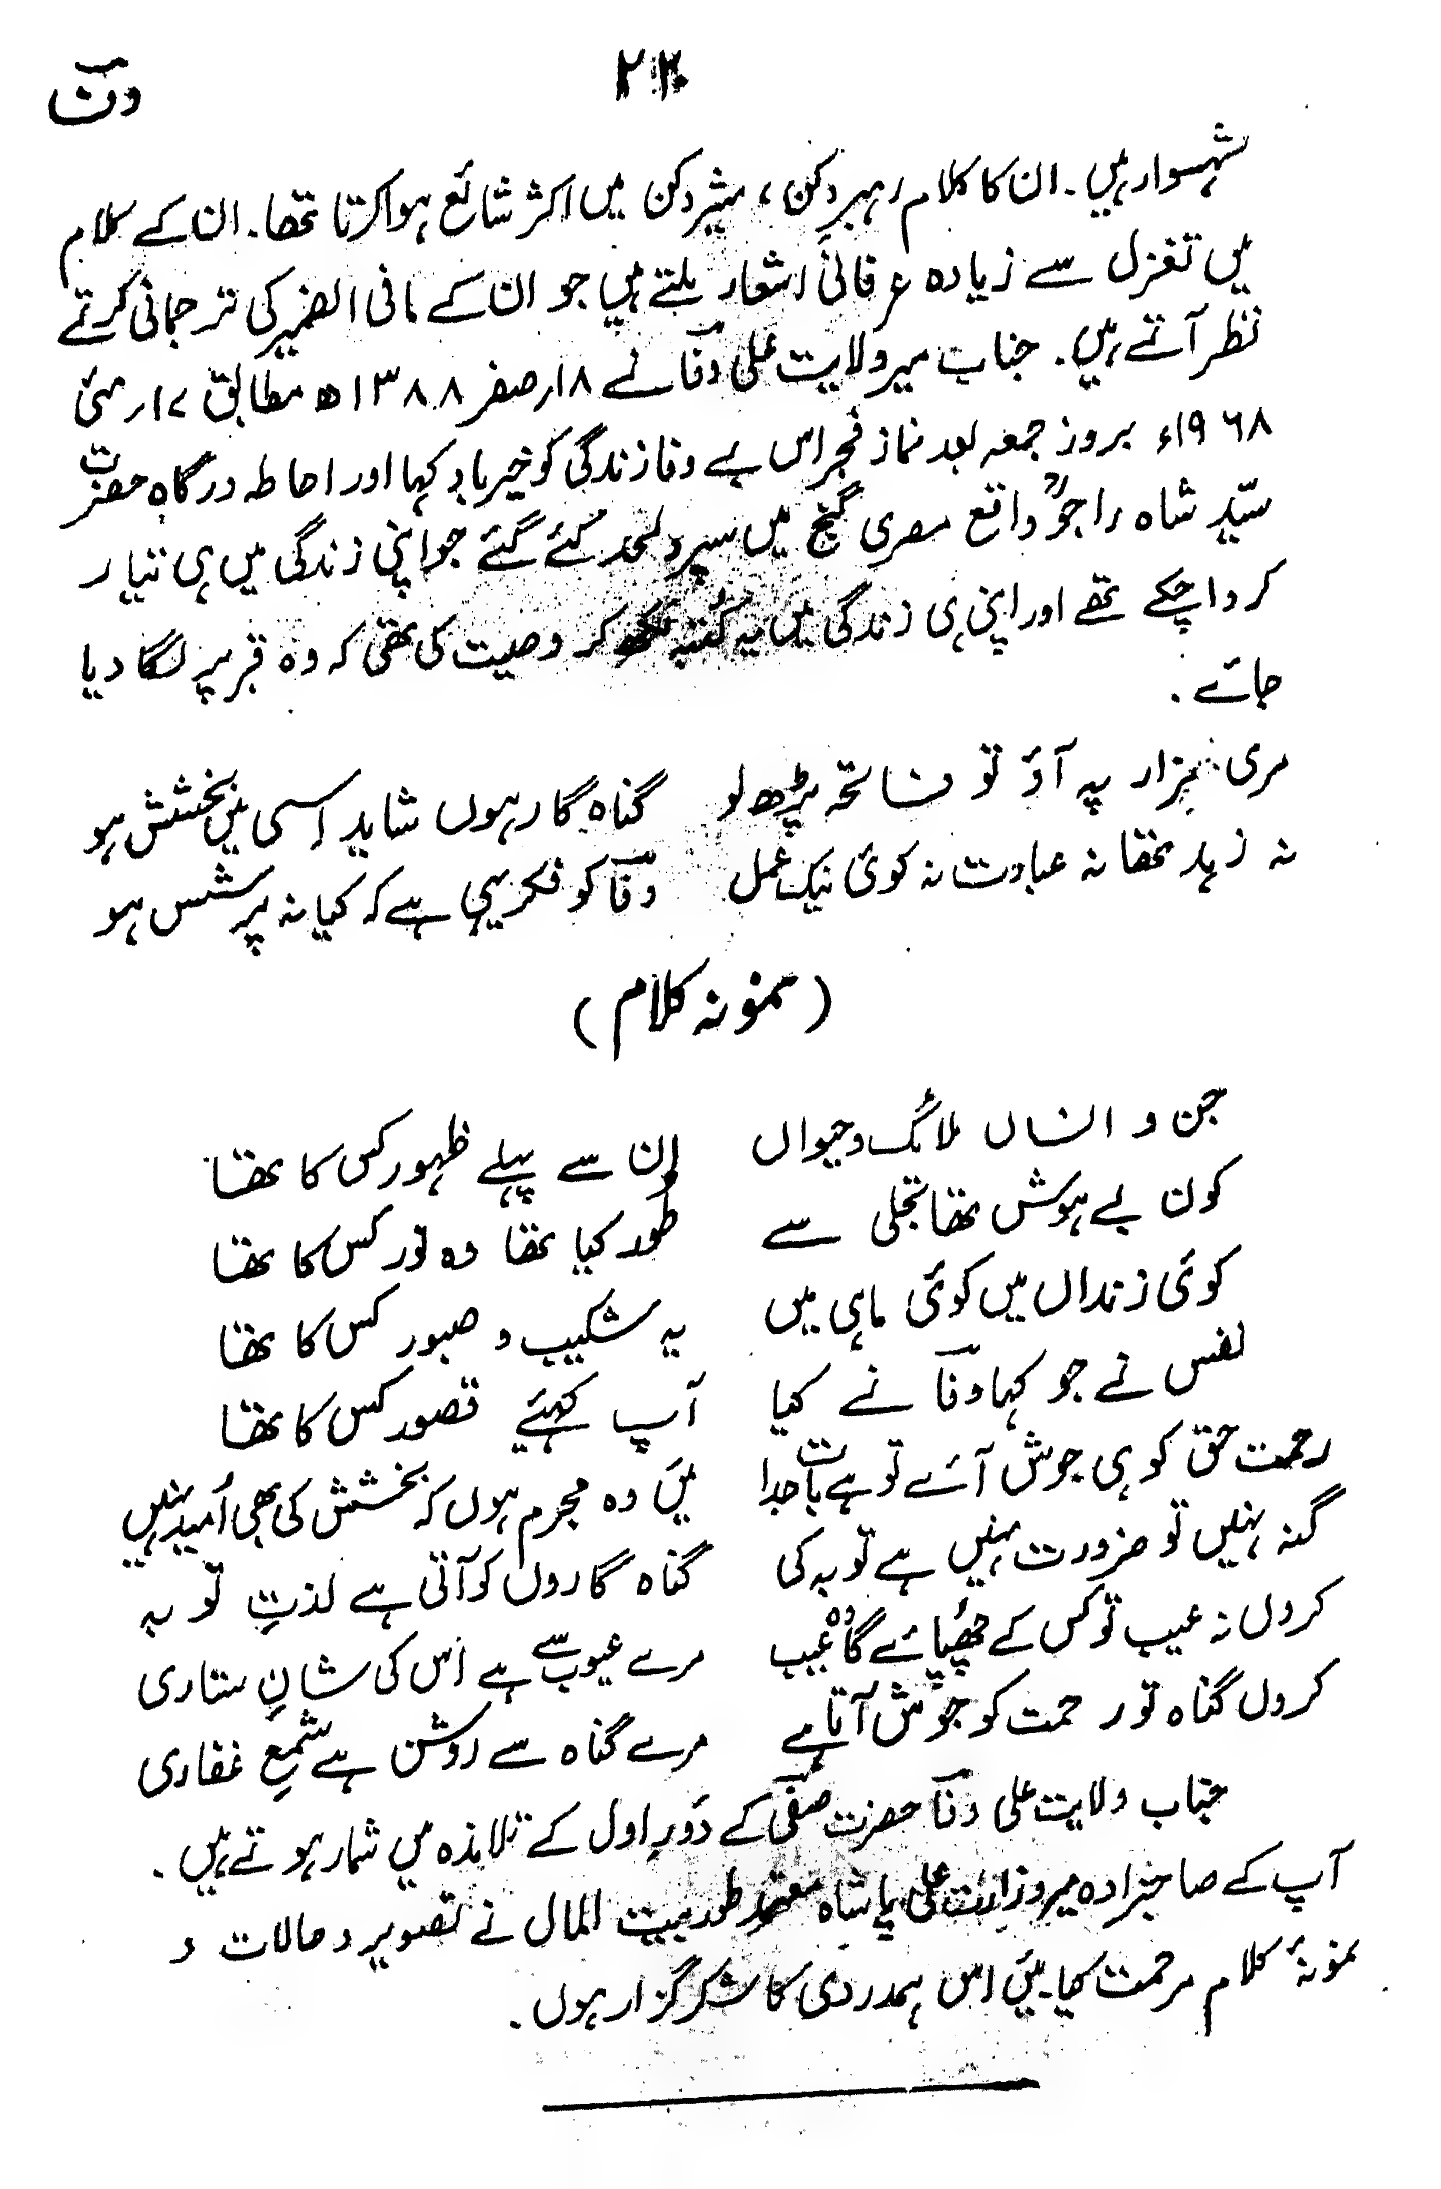 وفا
شہسوار ہیں ۔ ان کا کلام رہبر دکن ، مشیر دکن میں اکثر شائع ہوا کرتا تھا ۔ ان کے کلام
میں تغزل سے زیادہ عرفانی اشعار ملتے ہیں جو ان کے مافی الضمیر کی ترجمانی کرتے
نظر آتے ہیں ۔ جناب میر ولایت علی وفا نے ۱۸؍ صفر ۱۳۸۸ھ مطابق ۱۷؍ مئی
۱۹۶۸ء بروز جمعہ بعد نماز فجر اس بے وفا زندگی کو خیر باد کہا اور احاطہ درگاہ حضرت
سیّد شاہ راجوؒ واقع مصری گنج میں سپرد لحد کئے گئے جو اپنی زندگی میں ہی تیار
کروا چکے تھے اور اپنی ہی زندگی میں یہ کتبہ لکھ کر وصیت کی تھی کہ وہ قبر پر لگا دیا
جائے ۔
مری مزار پہ آؤ تو فاتحہ پڑھ لو گناہ گار ہوں شاید اسی میں بخشش ہو
نہ زہد تھا نہ عبادت نہ کوئی نیک عمل وفا کو فکر یہی ہے کہ کیا نہ پرسشس ہو
( نمونہ کلام )
جن و انساں ملائک و حیواں ان سے پہلے ظہور کس کا تھا
کون بے ہوش تھا تجلی سے طور کیا تھا وہ نور کس کا تھا
کوئی زنداں میں کوئی ماہی میں یہ شکیب و صبور کس کا تھا
نفس نے جو کہا وفا نے کیا آپ کہئیے قصور کس کا تھا
رحمت حق کو ہی جوش آئے تو ہے بات جدا میں وہ مجرم ہوں کہ بخشش کی بھی اُمید نہیں
گنہ نہیں تو ضرورت نہیں ہے توبہ کی گناہ گاروں کو آتی ہے لذتِ توبہ
کروں نہ عیب تو کس کے چھپائے گا وہ عیب مرے عیوب سے ہے اس کی شانِ ستاری
کروں گناہ تو رحمت کو جوش آتا ہے مرے گناہ سے روشن ہے شمعِ غفاری
جناب ولایت علی وفا حضرت صفی کے دَورِ اول کے تلامذہ میں شمار ہوتے ہیں ۔
آپ کے صاحبزادہ میر وزارت علی پاشاہ معتمد طور بیت المال نے تصویر و حالات و
نمونۂ کلام مرحمت کیا ۔ میں اس ہمدردی کا شکر گزار ہوں ۔